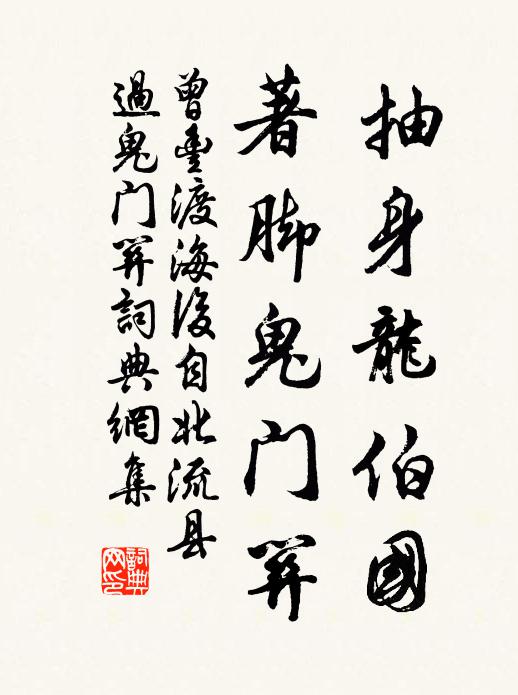 抽身龍伯國
著脚鬼门關
曾豐渡海後自北流县
過鬼门關詞典網集
詞典
网印